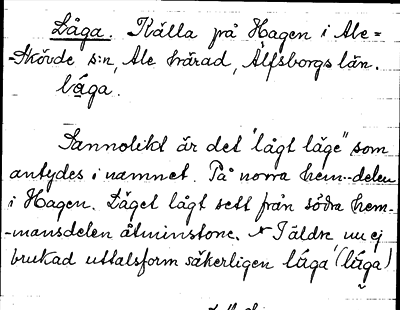 Låga. Källa på Hagen i Ale=
-Skövde s:n, Ale härad, Älfsborgs län.
låga.
Sannolikt är det "lågt läge" som
antydes i namnet. På norra hem-delen
i Hagen. Läget lågt sett från södra hem-
-mansdelen åtminstone. I äldre nu ej
brukad uttalsform säkerligen låga (låga)